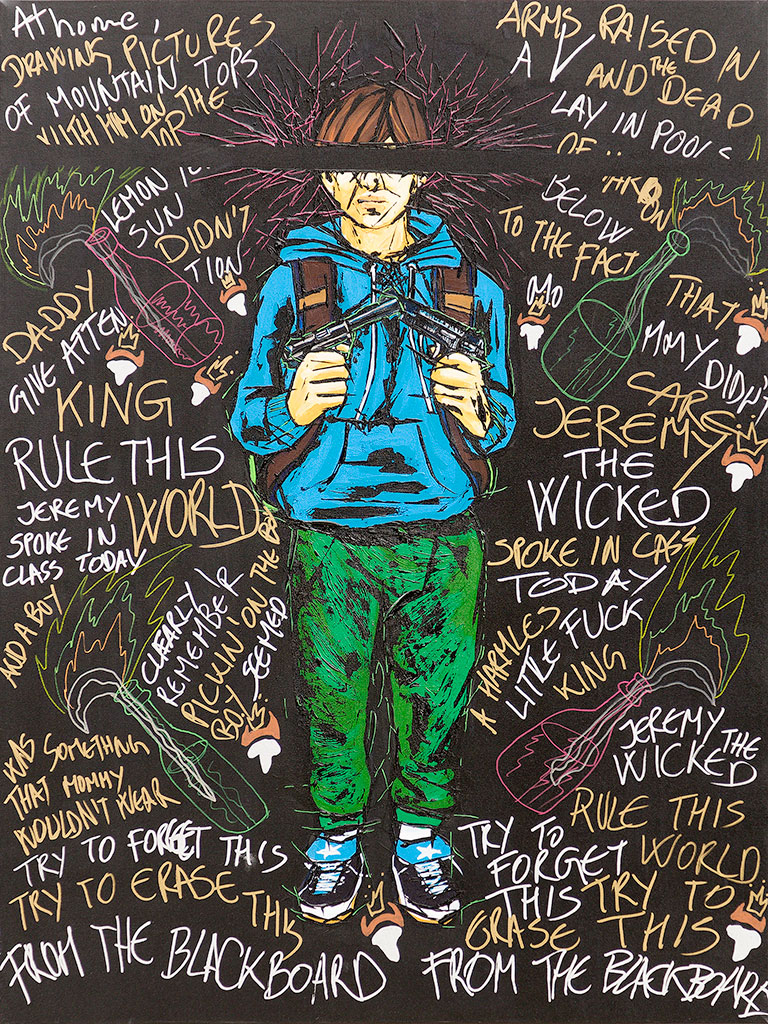 At home,
DRAWING PICTURES
OF MOUNTAIN TOPS
WITH HIM ON THE
TOP
LEMON
SUN
DIDN'T
TION
DADDY
GIVE ATTEN
KING
RULE THIS
JEREMY WORLD
SPOKE IN
CLASS TODAY
AND A BOY
CLEARLY
REMEMBER
PICKIN' ON THE
BOY SEEMED
WAS SOMETHING
THAT MOMMY
WOULDN'T WEAR
TRY TO FORGET THIS
TRY TO ERASE THIS
FROM THE BLACKBOARD
ARMS RAISED IN
A V AND THE DEAD
LAY IN POOLS
OF ..
BELOW
TO THE FACT
THAT
MOMY DIDN'T
CARE
JEREMY
THE
WICKED
SPOKE IN CASS
TODAY
A HARMLES
LITTLE FUCK
KING
JEREMY THE
WICKED
RULE THIS
WORLD
TRY TO
FORGET
THIS TRY TO
ERASE THIS
FROM THE BLACKBOARD